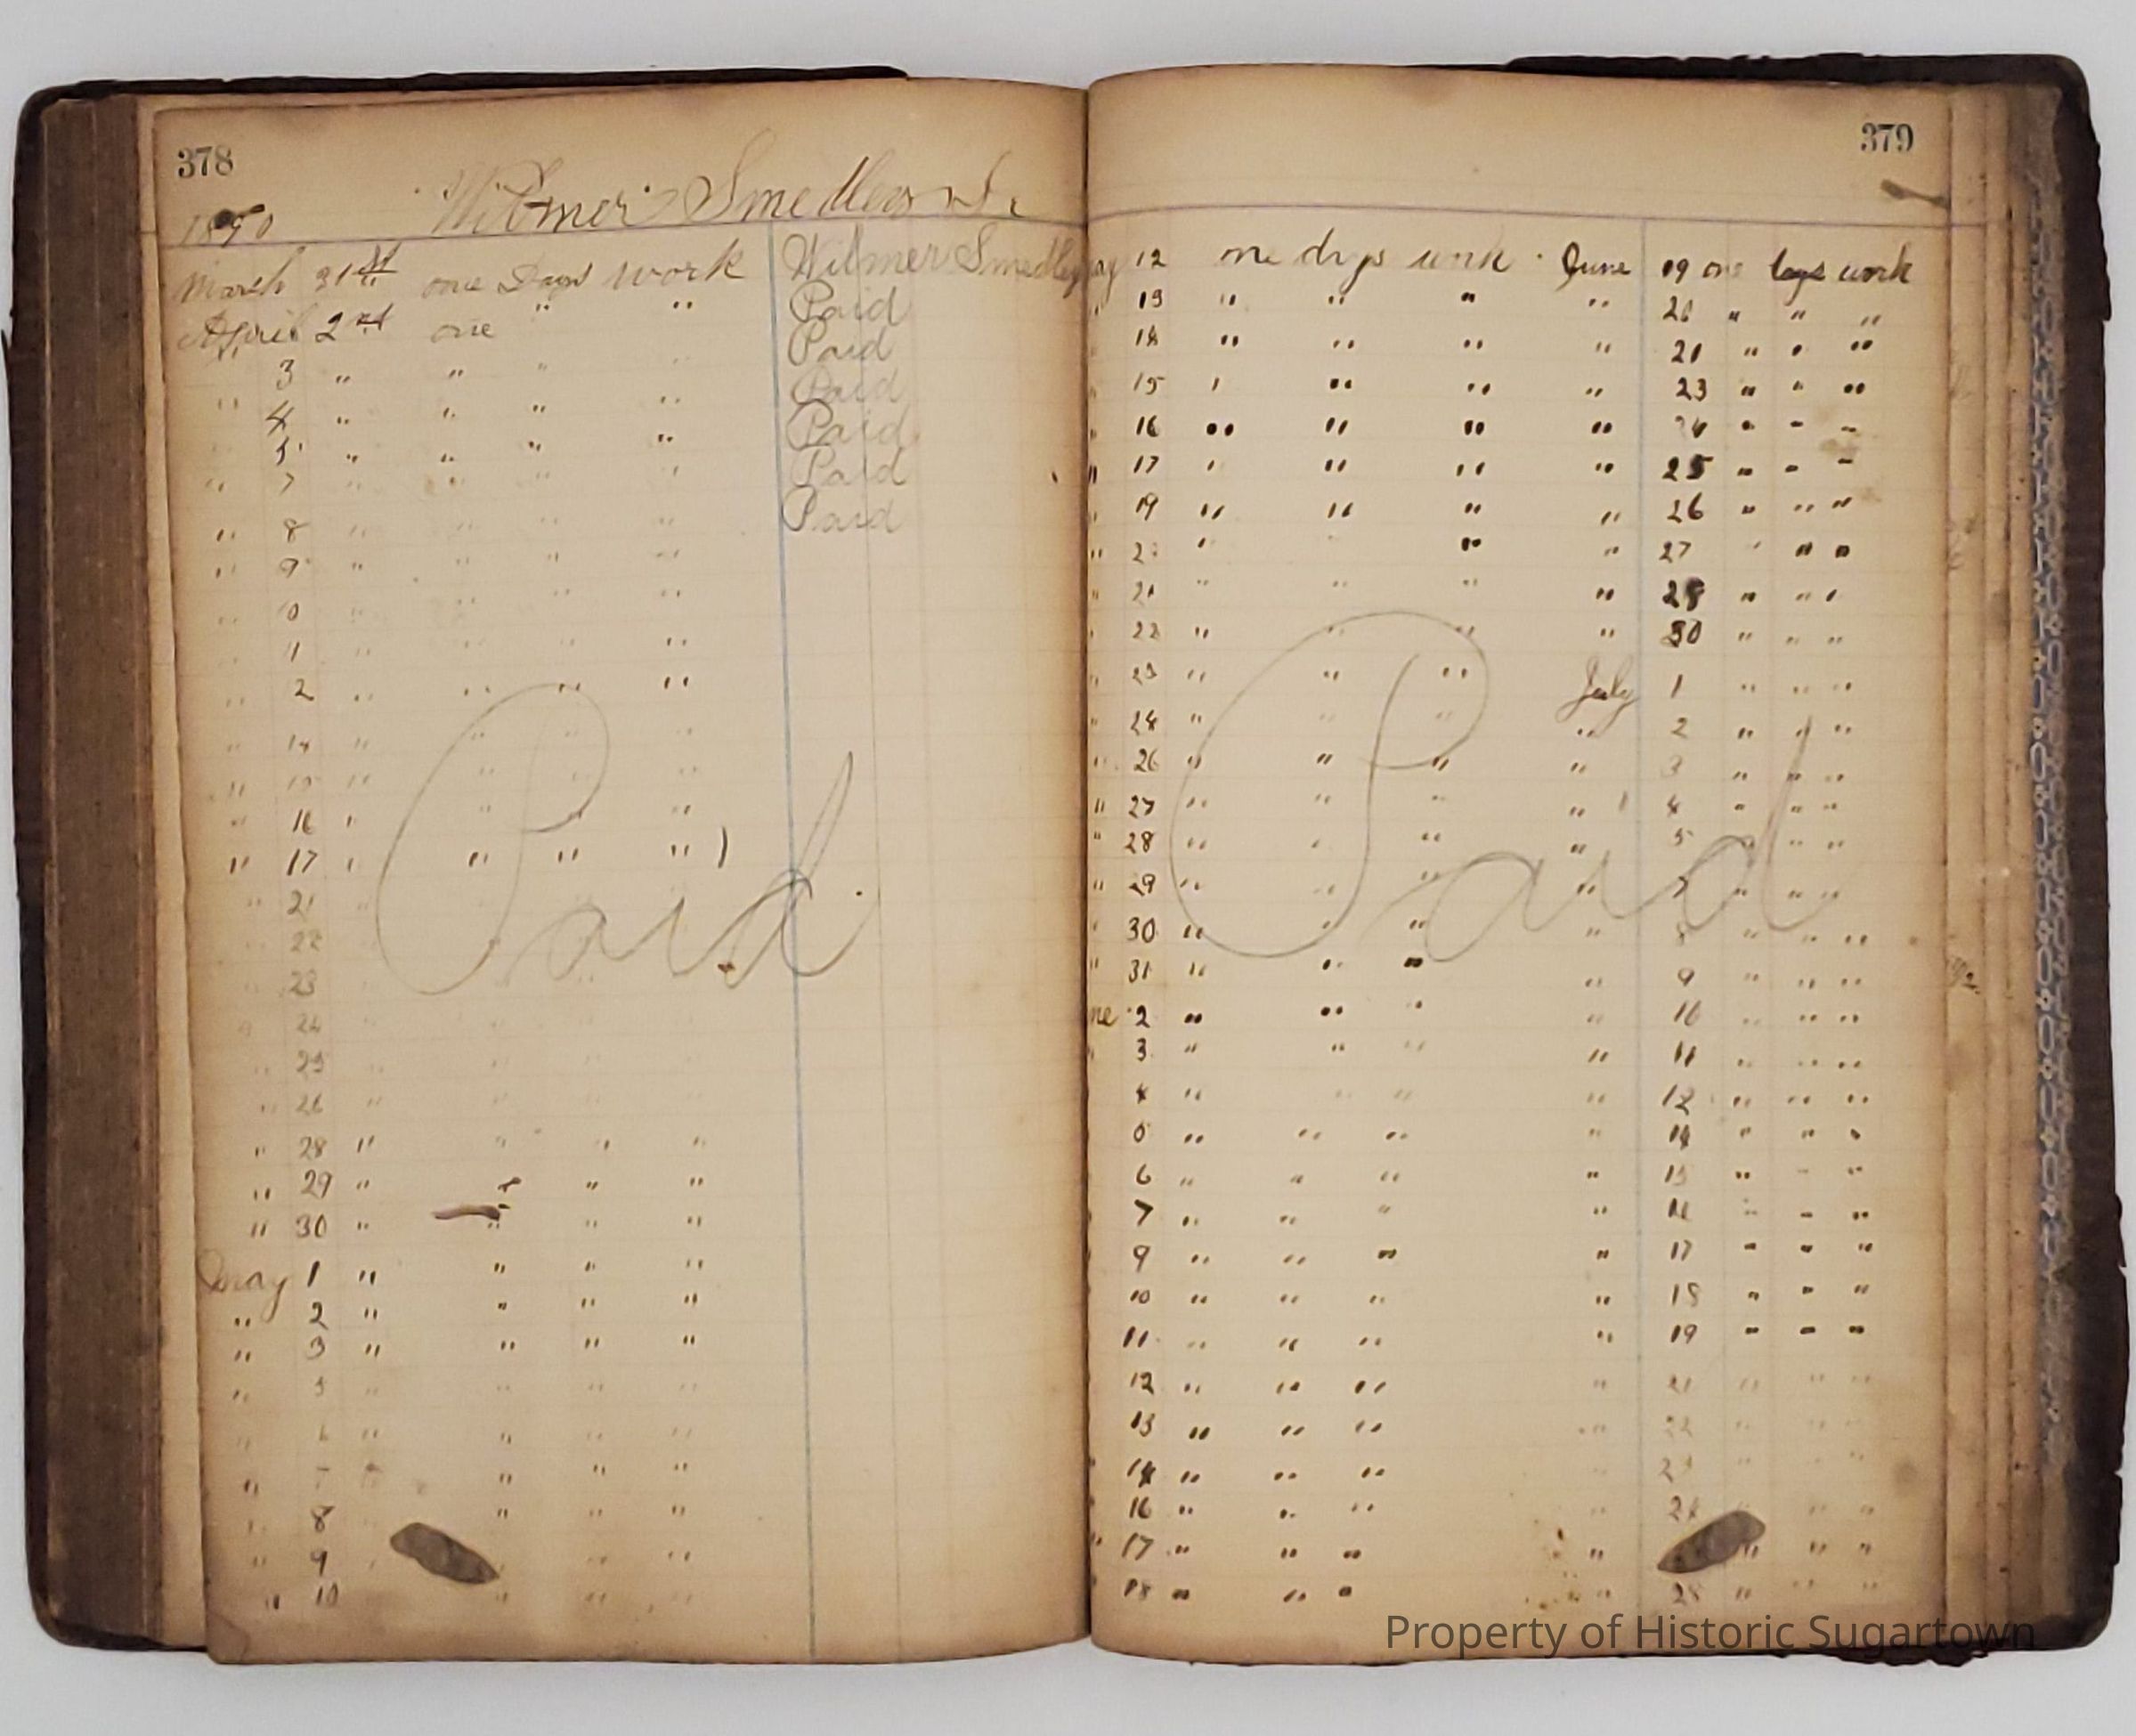 378
1890 Wilmer Smedley
March 31st one Days work Wilmer Smedley
April 2nd one " " Paid
" 3 " " " " Paid
" 4 " " " " Paid
" 5 " " " " Paid
" 7 " " " " Paid
" 8 " " " " Paid
" 9 " " " "
" 10 " " " "
" 11 " " " "
" 12 " " " "
" 14 " " " "
" 15 " " " "
" 16 " " " "
" 17 " " " "
" 21 "
" 22
" 23
" 24
" 25 " " " "
" 26 " " " "
" 28 " " " "
" 29 " " " "
" 30 " " " "
May 1 " " " "
" 2 " " " "
" 3 " " " "
" 5 " " " "
" 6 " " " "
" 7 " " " "
" 8 " " "
" 9 " " "
" 10 " " "
Paid
379
12 one days work June 19 one days work
" 13 " " " " 20 " " "
" 14 " " " " 21 " " "
" 15 " " " " 23 " " "
" 16 " " " " 24 " " "
" 17 " " " " 25 " " "
" 19 " " " " 26 " " "
" " " " 27 " " "
" 21 " " " " 28 " " "
" 22 " " " " 30 " " "
" 23 " " " July 1 " " "
" 24 " " " " 2 " " "
" 26 " " " " 3 " " "
" 27 " " " " 4 " " "
" 28 " " " " 5 " " "
" 29 " " " " 7 " " "
" 30 " " " " 8 " " "
" 31 " " " " 9 " " "
2 " " " " 10 " " "
" 3 " " " " 11 " " "
" 4 " " " " 12 " " "
" 5 " " " " 14 " " "
" 6 " " " " 15 " " "
" 7 " " " " 16 " " "
" 9 " " " " 17 " " "
" 10 " " " " 18 " " "
" 11 " " " " 19 " " "
" 12 " " " " 21 " " "
" 13 " " " " 22 " " "
" 14 " " " " 23 " " "
" 16 " " " " 24 " " "
" 17 " " " " " " "
" 18 " " " " " " "
Paid
Property of Historic Sugartown